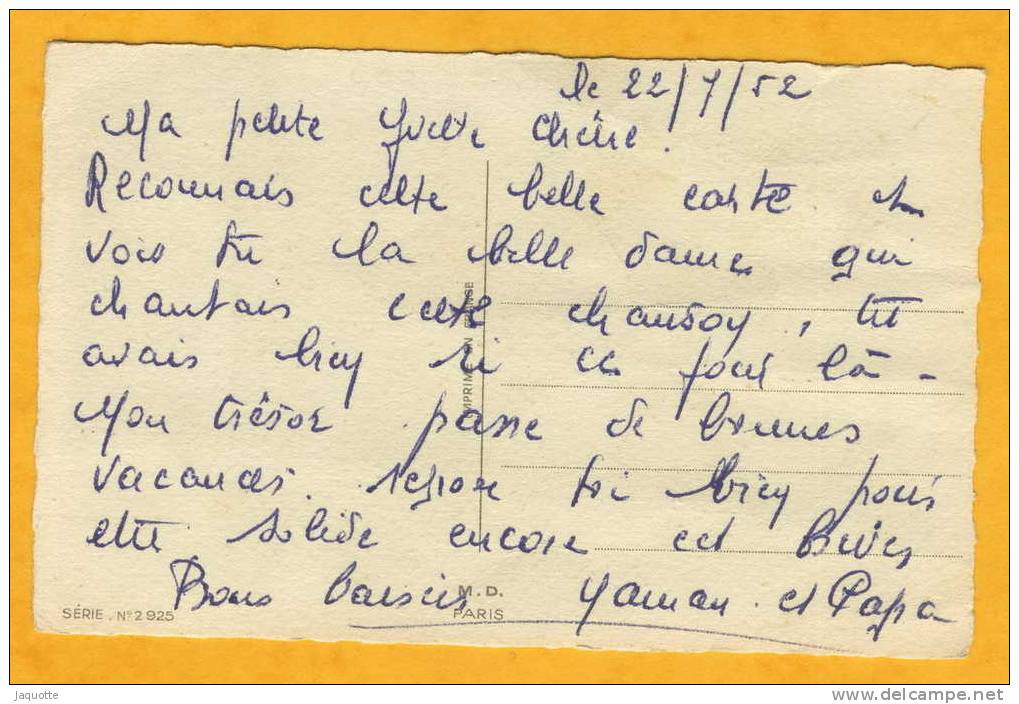 le 22/7/52
Ma petite Yvette chérie.
Reconnais cette belle carte
vois tu la belle dame qui
chantais cette chanson, tu
avais bien ri ce jour là -
Mon trésor passe de bonnes
vacances. repose toi bien pour
être solide encore et
Bons baisers Maman et Papa
IMPRIMÉ EN FRANCE
M.D.
PARIS
SÉRIE . N° 2925
Jaquotte
www.delcampe.net